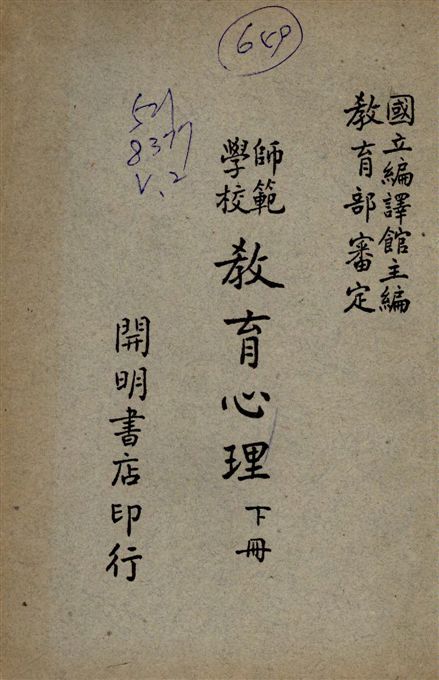 國立編譯館主編
教育部審定
師範
學校
教育心理
下冊
開明書店印行
649
521
8377
V.2